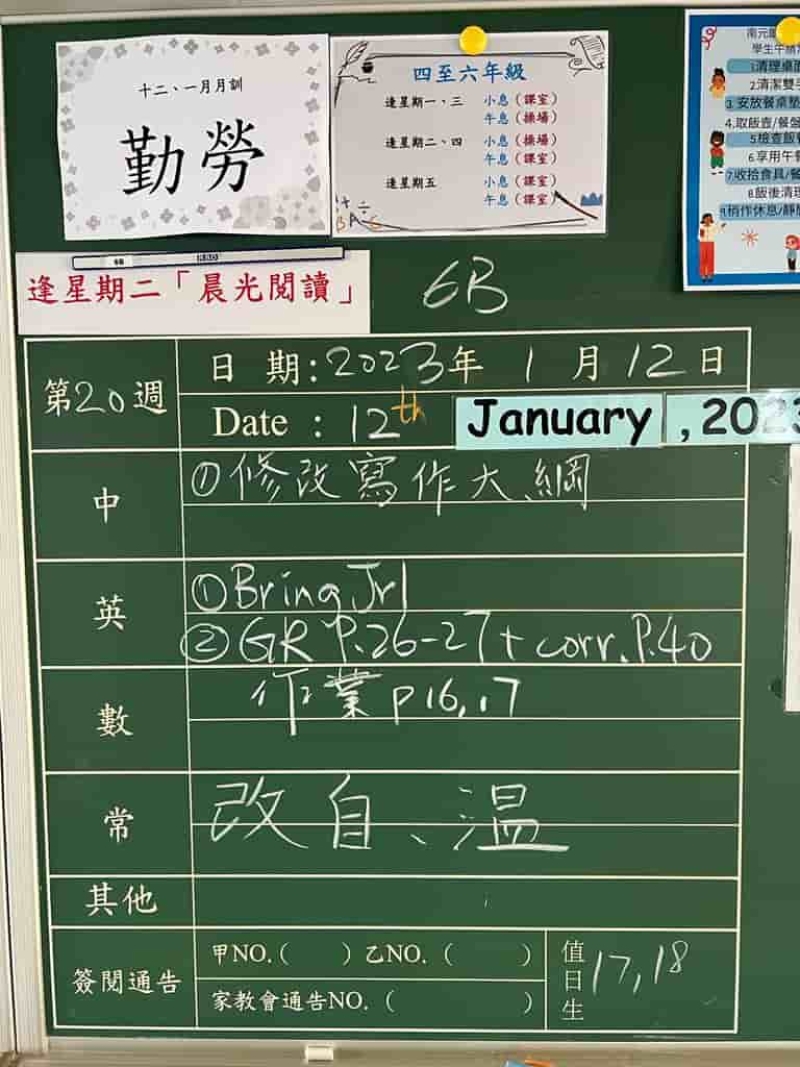 十二、一月月訓
勤勞
四至六年級
逢星期一、三 小息（課室）
午息（操場）
逢星期二、四 小息（操場）
午息（課室）
逢星期五 小息（課室）
午息（課室）
學生午膳
1.清理桌面
2.清潔雙手
3.安放餐桌墊
4.取飯壺/餐盤
5.檢查飯
6.享用午餐
7.收拾食具/餐
8.飯後清理
9.稍作休息/靜
逢星期二「晨光閱讀」
6B
第20週
日期:2023年1月12日
Date : 12th January, 2023
中
①修改寫作大綱
英
①Bring Jrl
②GR P.26-27+corr.P.40
數
作業p16,17
常
改自、溫
其他
簽閱通告
甲NO.( ) 乙NO.( )
家教會通告NO.( )
值日生
17,18